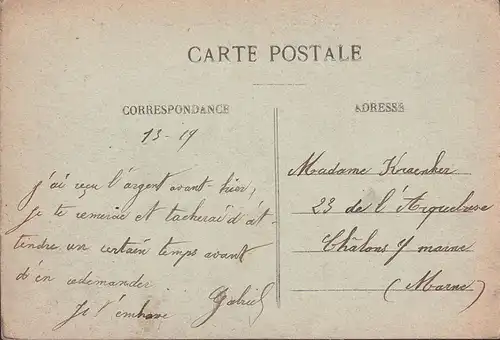 CARTE POSTALE
CORRESPONDANCE
ADRESSE
13-19
j'ai reçu l'argent avant-hier,
je te remercie et tacherai d'at-
tendre un certain temps avant
d'en redemander.
Je t'embrasse Gabriel
Madame Kraenker
23 de l'Arquebuse
Châlons s/ marne
(Marne)